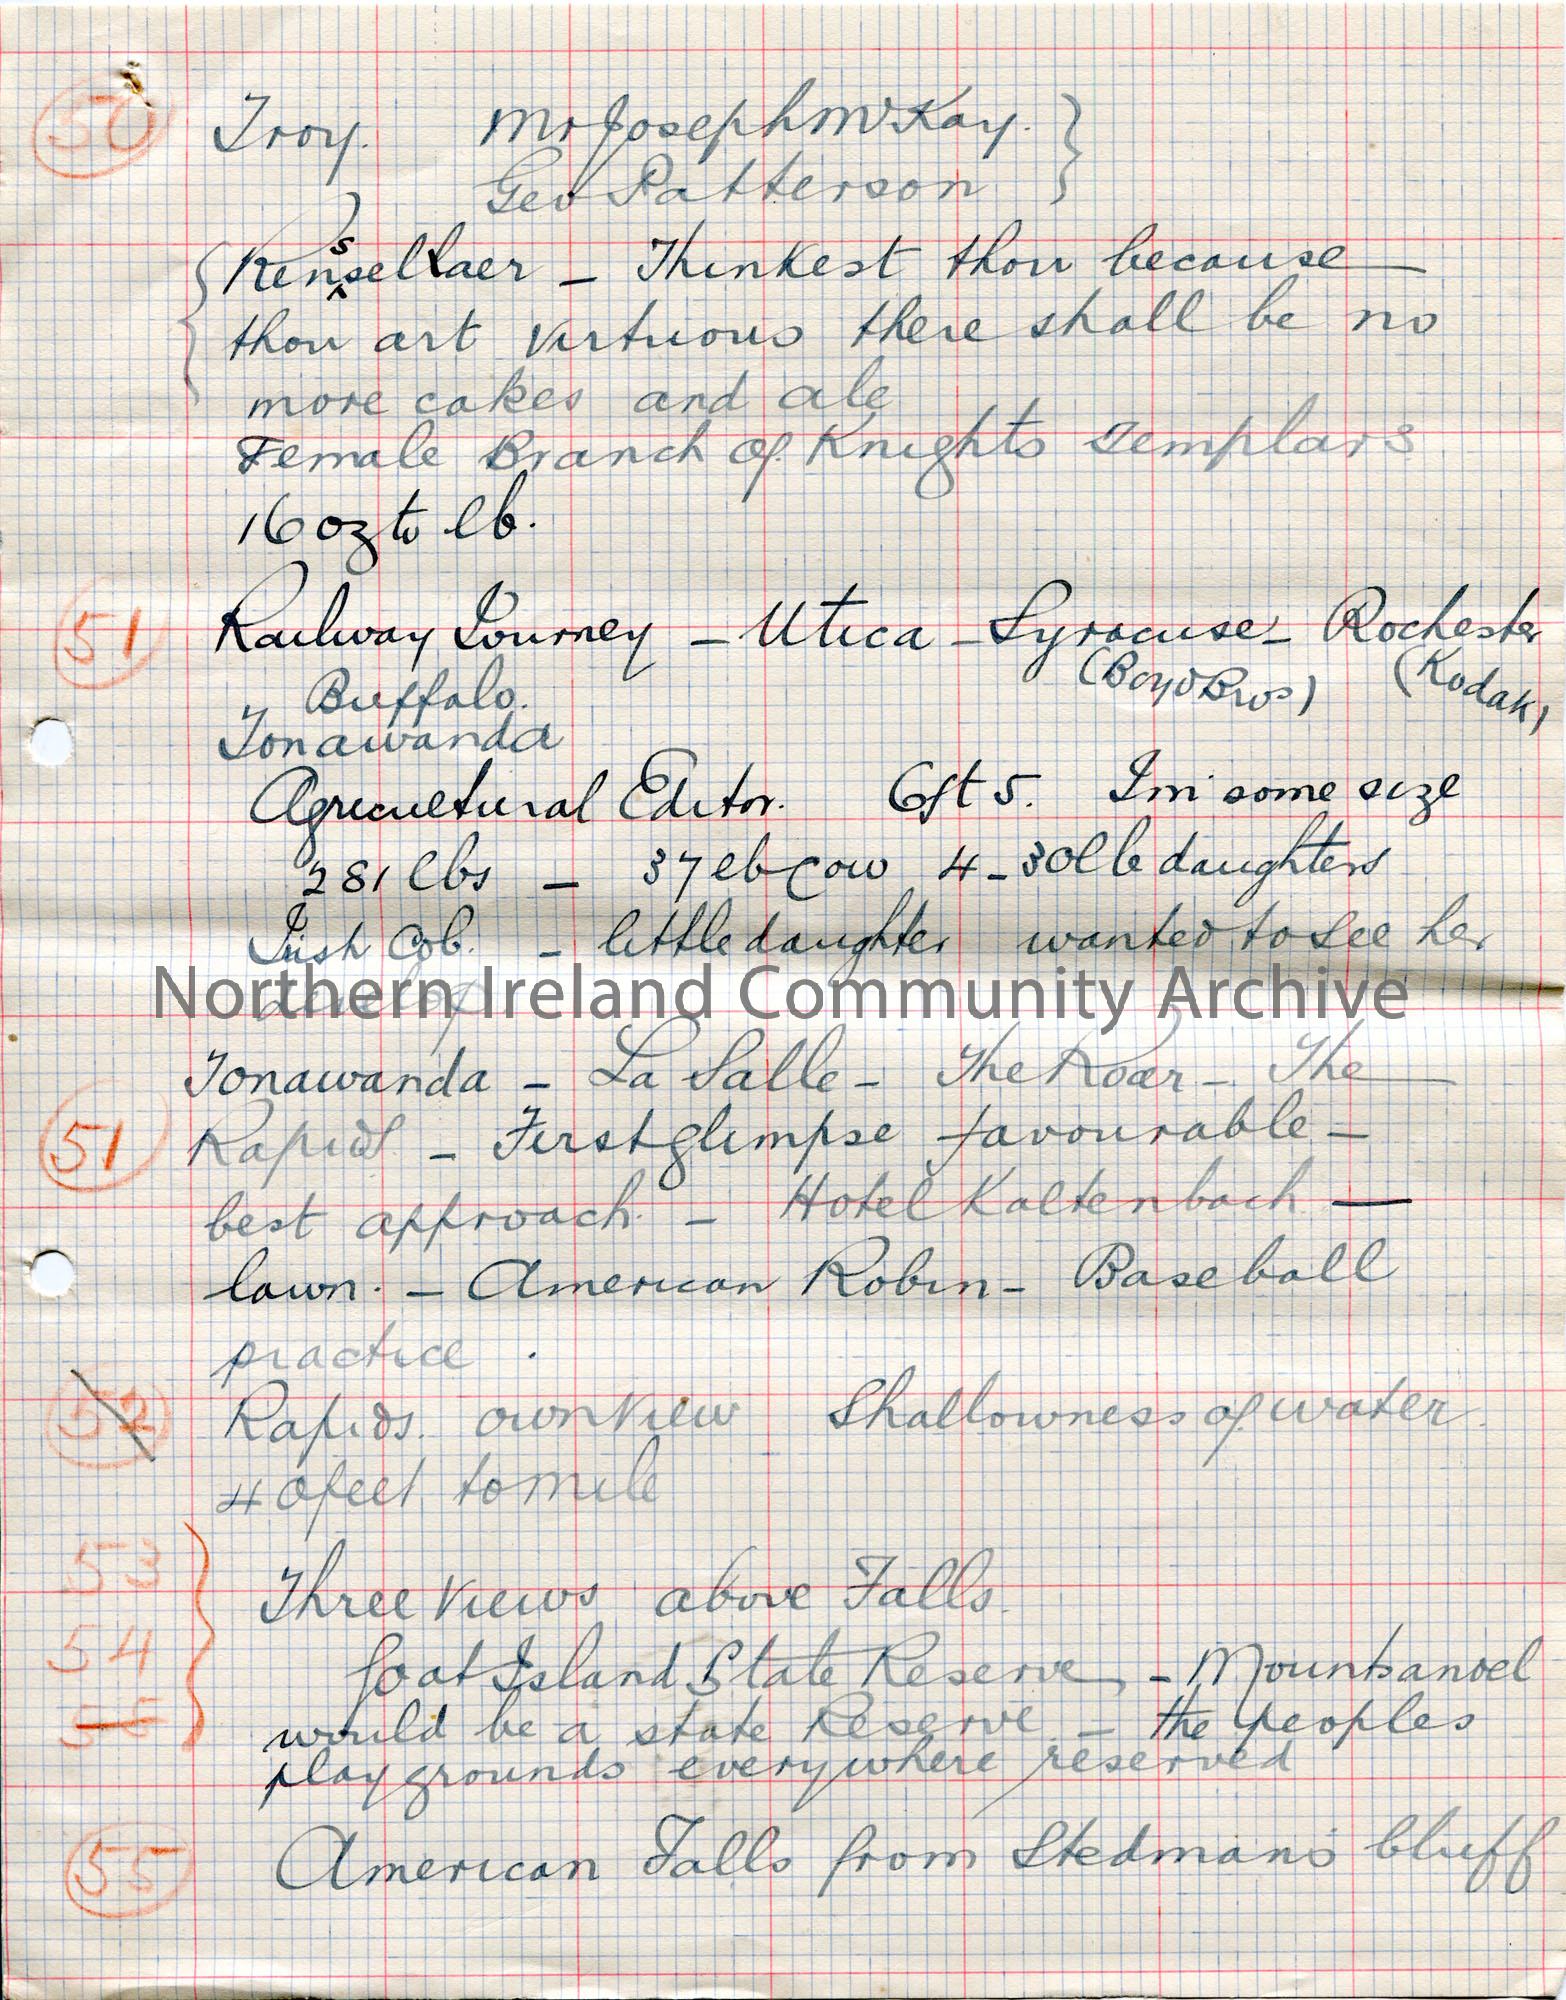 50 Troy. Mr Joseph McKay.
Geo Patterson
Rensselaer – Thinkest thou because
thou art virtuous there shall be no
more cakes and ale
Female Branch of Knights Templars
16 oz to lb.
51 Railway Journey – Utica – Syracuse – Rochester
(Boyd Bros) (Kodak)
Buffalo.
Tonawanda
Agricultural Editor. 6ft 5. I'm some size
281 lbs – 37 lb cow 4 – 30 lb daughters
Irish Cob. – little daughter wanted to see her
develop
Northern Ireland Community Archive
Tonawanda – La Salle – The Roar – The
51 Rapids – First glimpse favourable –
best approach. – Hotel Kaltenbach —
lawn. – American Robin – Baseball
practice.
52 Rapids. own view Shallowness of water.
40 feet to mile
53
54
55
Three views above Falls.
Goat Island State Reserve – Mountsandel
would be a state Reserve – the peoples
playgrounds everywhere reserved
55 American Falls from Stedman's bluff